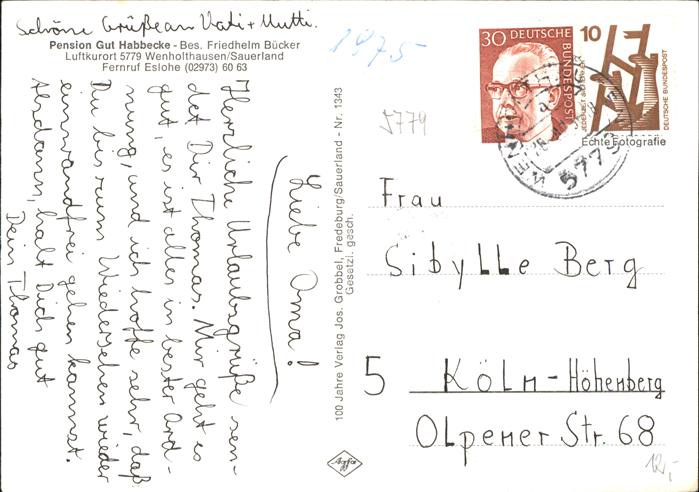 Schöne Grüße an Vati + Mutti.
Pension Gut Habbecke - Bes. Friedhelm Bücker
Luftkurort 5779 Wenholthausen/Sauerland
Fernruf Eslohe (02973) 60 63
1975
5779
Liebe Oma!
Herzliche Urlaubsgrüße sen-
det Dir Thomas. Mir geht es
gut, es ist alles in bester Ord-
nung, und ich hoffe sehr, daß
Du bis zum Wiedersehen wieder
einwandfrei gehen kannst.
Alsdann, halt Dich gut
Dein Thomas
100 Jahre Verlag Jos. Grobbel, Fredeburg/Sauerland - Nr. 1343
Gesetzl. gesch.
30 DEUTSCHE BUNDESPOST
10
JEDERZEIT SICHERHEIT
DEUTSCHE BUNDESPOST
5779
Echte Fotografie
Frau
Sibylle Berg
5 KÖLN-Höhenberg
Olpener Str. 68
Agfa
12,-